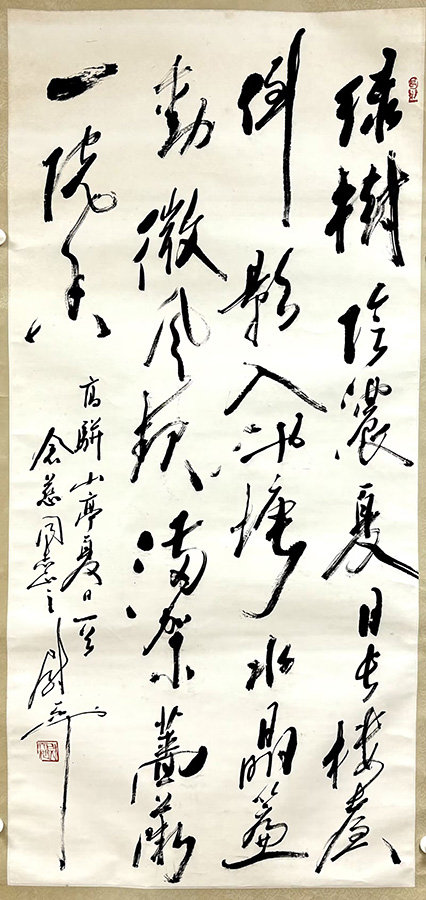 緑樹陰濃夏日长楼臺
倒影入池塘水晶簾
動微风起满架薔薇
一院香
高駢山亭夏日一首
念慈同志